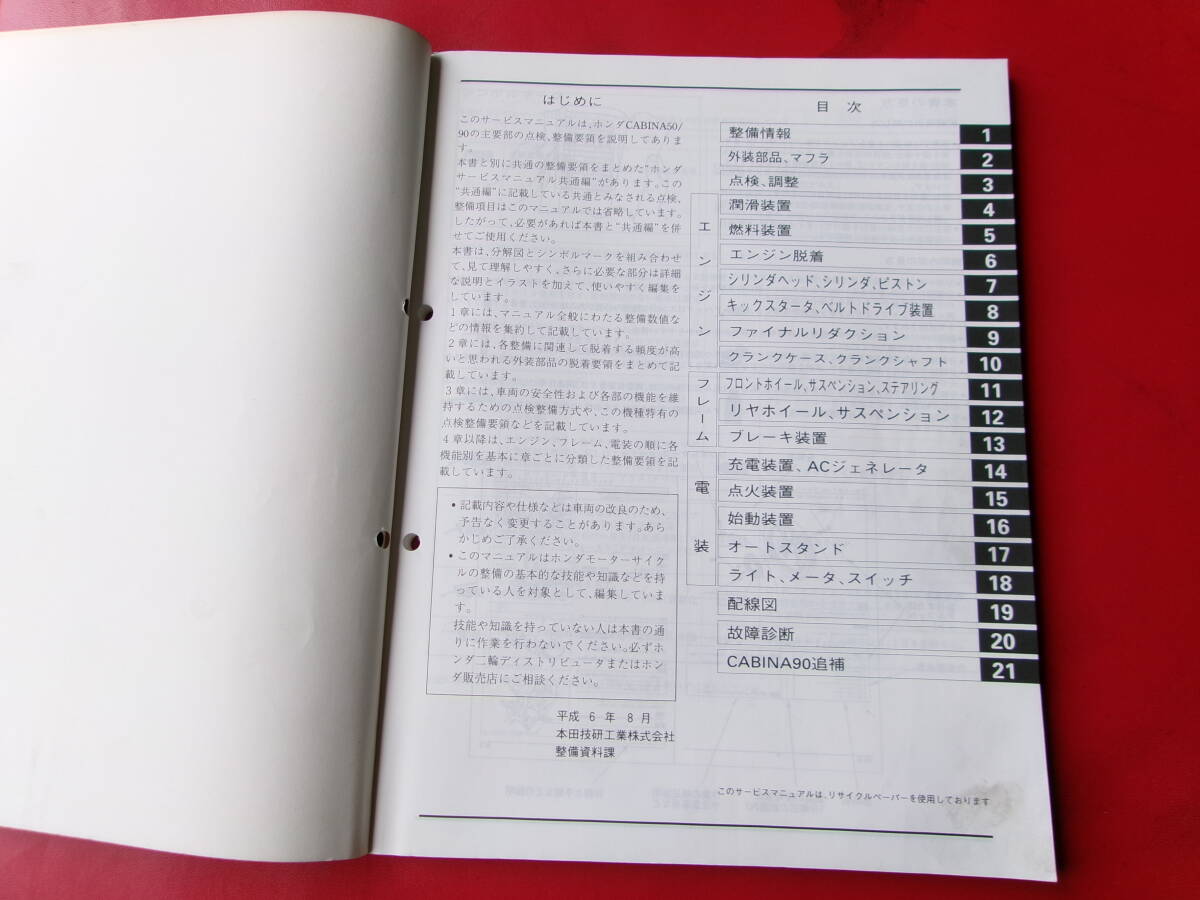 はじめに
このサービスマニュアルは、ホンダCABINA50/
90の主要部の点検、整備要領を説明してありま
す。
本書と別に共通の整備要領をまとめた"ホンダ
サービスマニュアル共通編"があります。この
"共通編"に記載している共通とみなされる点検、
整備項目はこのマニュアルでは省略しています。
したがって、必要があれば本書と"共通編"を併
せてご使用ください。
本書は、分解図とシンボルマークを組み合わせ
て、見て理解しやすく、さらに必要な部分は詳細
な説明とイラストを加えて、使いやすく編集を
しています。
1章には、マニュアル全般にわたる整備数値な
どの情報を集約して記載しています。
2章には、各整備に関連して脱着する頻度が高
いと思われる外装部品の脱着要領をまとめて記
載しています。
3章には、車両の安全性および各部の機能を維
持するための点検整備方式や、この機種特有の
点検整備要領などを記載しています。
4章以降は、エンジン、フレーム、電装の順に各
機能別を基本に章ごとに分類した整備要領を記
載しています。
・記載内容や仕様などは車両の改良のため、
予告なく変更することがあります。あら
かじめご了承ください。
・このマニュアルはホンダモーターサイク
ルの整備の基本的な技能や知識などを持
っている人を対象として、編集していま
す。
技能や知識を持っていない人は本書の通
りに作業を行わないでください。必ずホ
ンダ二輪ディストリビュータまたはホン
ダ販売店にご相談ください。
平成6年8月
本田技研工業株式会社
整備資料課
目次
整備情報 1
外装部品、マフラ 2
点検、調整 3
エンジン
潤滑装置 4
燃料装置 5
エンジン脱着 6
シリンダヘッド、シリンダ、ピストン 7
キックスタータ、ベルトドライブ装置 8
ファイナルリダクション 9
クランクケース、クランクシャフト 10
フレーム
フロントホイール、サスペンション、ステアリング 11
リヤホイール、サスペンション 12
ブレーキ装置 13
電装
充電装置、ACジェネレータ 14
点火装置 15
始動装置 16
オートスタンド 17
ライト、メータ、スイッチ 18
配線図 19
故障診断 20
CABINA90追補 21
このサービスマニュアルは、リサイクルペーパーを使用しております